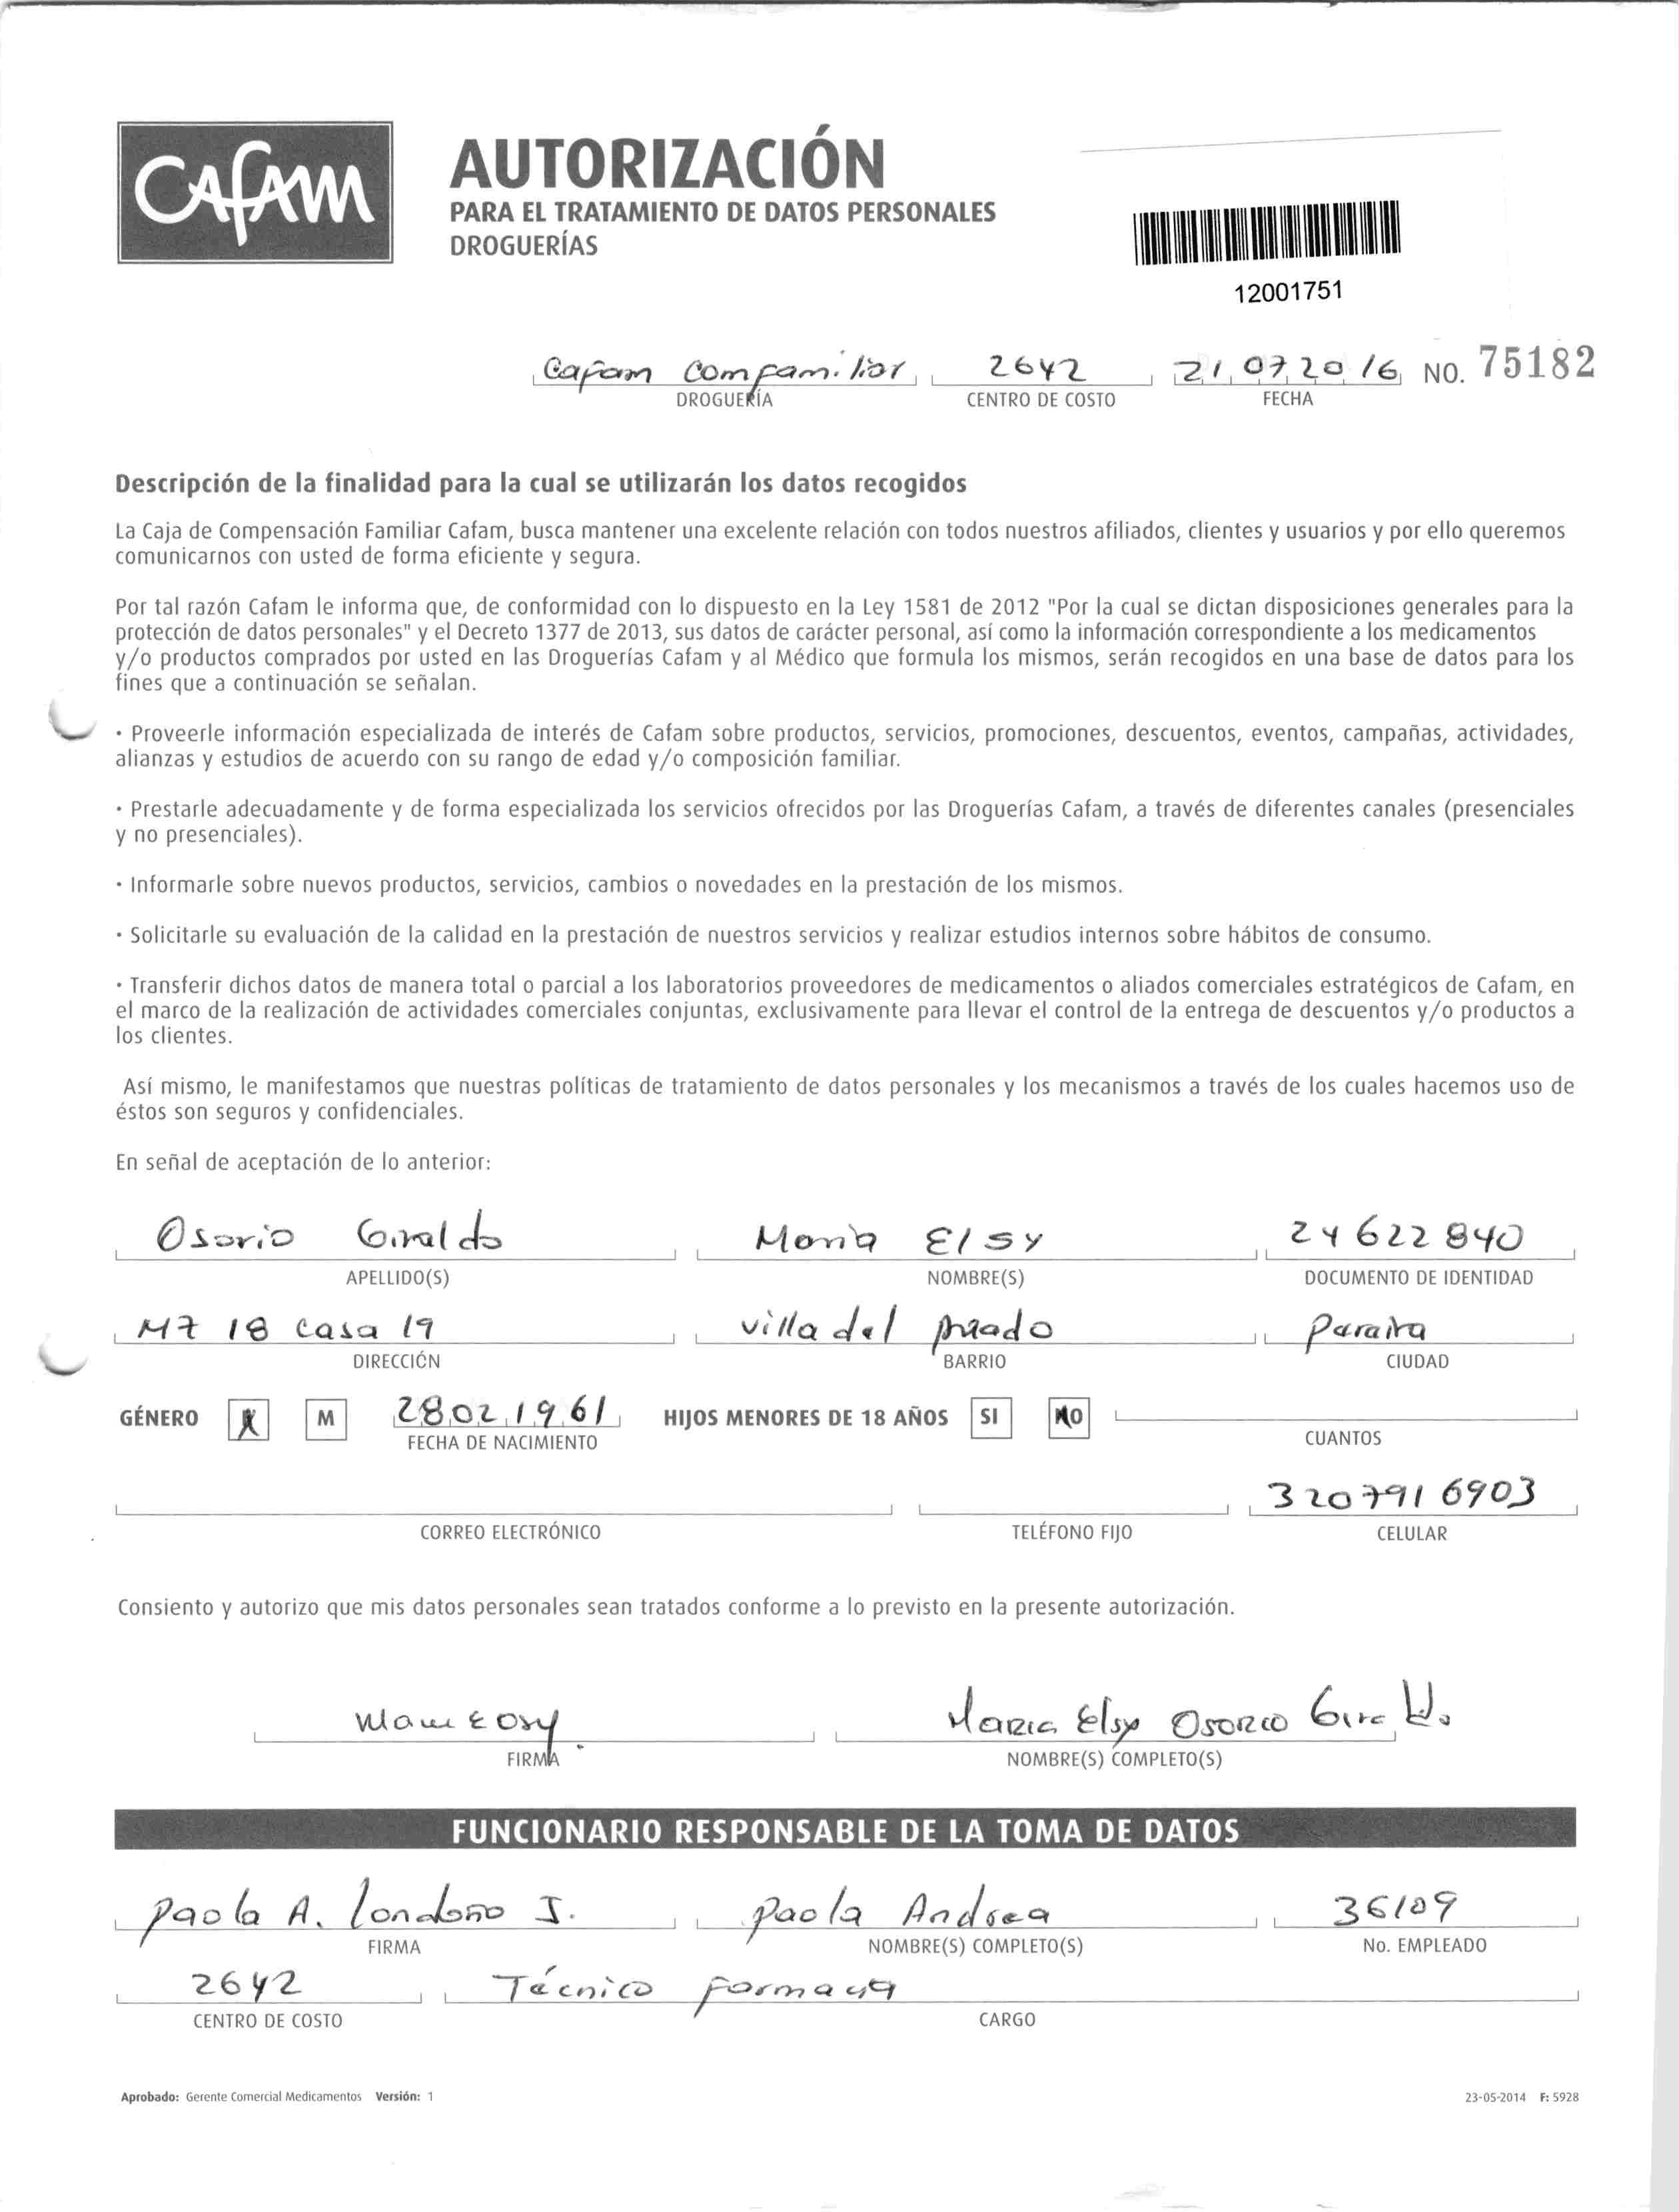 CAFAM
AUTORIZACIÓN
PARA EL TRATAMIENTO DE DATOS PERSONALES
DROGUERÍAS
12001751
Cafam Compamiliar 2642 21 07 2016 NO. 75182
DROGUERÍA CENTRO DE COSTO FECHA
Descripción de la finalidad para la cual se utilizarán los datos recogidos
La Caja de Compensación Familiar Cafam, busca mantener una excelente relación con todos nuestros afiliados, clientes y usuarios y por ello queremos
comunicarnos con usted de forma eficiente y segura.
Por tal razón Cafam le informa que, de conformidad con lo dispuesto en la Ley 1581 de 2012 "Por la cual se dictan disposiciones generales para la
protección de datos personales" y el Decreto 1377 de 2013, sus datos de carácter personal, así como la información correspondiente a los medicamentos
y/o productos comprados por usted en las Droguerías Cafam y al Médico que formula los mismos, serán recogidos en una base de datos para los
fines que a continuación se señalan.
· Proveerle información especializada de interés de Cafam sobre productos, servicios, promociones, descuentos, eventos, campañas, actividades,
alianzas y estudios de acuerdo con su rango de edad y/o composición familiar.
· Prestarle adecuadamente y de forma especializada los servicios ofrecidos por las Droguerías Cafam, a través de diferentes canales (presenciales
y no presenciales).
· Informarle sobre nuevos productos, servicios, cambios o novedades en la prestación de los mismos.
· Solicitarle su evaluación de la calidad en la prestación de nuestros servicios y realizar estudios internos sobre hábitos de consumo.
· Transferir dichos datos de manera total o parcial a los laboratorios proveedores de medicamentos o aliados comerciales estratégicos de Cafam, en
el marco de la realización de actividades comerciales conjuntas, exclusivamente para llevar el control de la entrega de descuentos y/o productos a
los clientes.
Así mismo, le manifestamos que nuestras políticas de tratamiento de datos personales y los mecanismos a través de los cuales hacemos uso de
éstos son seguros y confidenciales.
En señal de aceptación de lo anterior:
Osorio Giraldo Maria Elsy 24622840
APELLIDO(S) NOMBRE(S) DOCUMENTO DE IDENTIDAD
MZ 18 casa 19 villa del prado Pereira
DIRECCIÓN BARRIO CIUDAD
GÉNERO X M 28 02 1961 HIJOS MENORES DE 18 AÑOS SI NO
FECHA DE NACIMIENTO CUANTOS
3207916903
CORREO ELECTRÓNICO TELÉFONO FIJO CELULAR
Consiento y autorizo que mis datos personales sean tratados conforme a lo previsto en la presente autorización.
Maria Elsy Osorio Giraldo
FIRMA NOMBRE(S) COMPLETO(S)
FUNCIONARIO RESPONSABLE DE LA TOMA DE DATOS
Paola A. Londoño J. Paola Andrea 36109
FIRMA NOMBRE(S) COMPLETO(S) No. EMPLEADO
2642 Técnico Farmacia
CENTRO DE COSTO CARGO
Aprobado: Gerente Comercial Medicamentos Versión: 1 23-05-2014 F: 5928